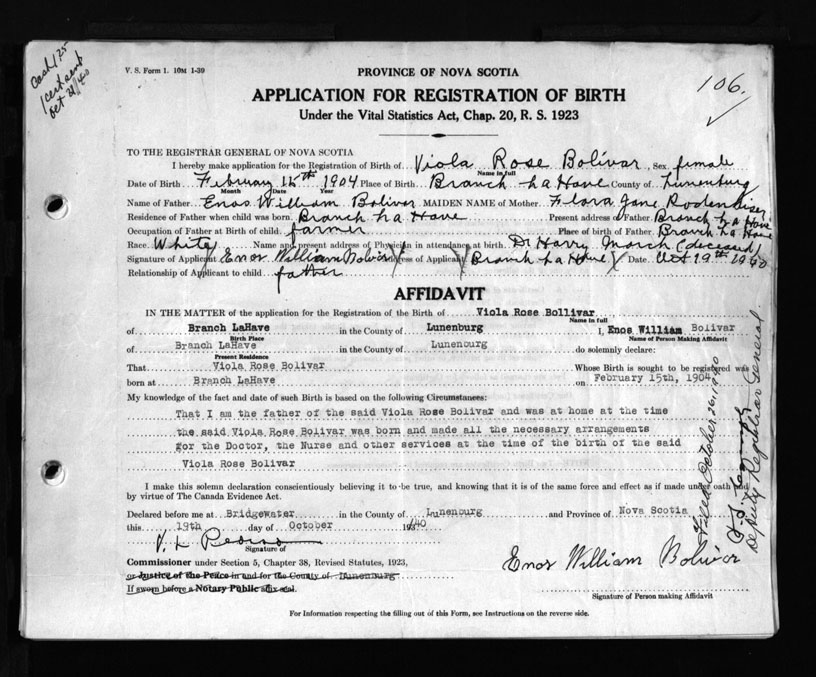 Cash 1.25
1 cert sent
Oct 31/40
V. S. Form 1. 10M 1-39
PROVINCE OF NOVA SCOTIA
106.
APPLICATION FOR REGISTRATION OF BIRTH
Under the Vital Statistics Act, Chap. 20, R. S. 1923
TO THE REGISTRAR GENERAL OF NOVA SCOTIA
I hereby make application for the Registration of Birth of Viola Rose Bolivar, Sex female
Name in full
Date of Birth February 15th 1904 Place of Birth Branch La Have County of Lunenburg
Month Date Year
Name of Father Enos William Bolivar MAIDEN NAME of Mother Flora Jane Rodenhiser
Residence of Father when child was born Branch La Have Present address of Father Branch La Have
Occupation of Father at Birth of child farmer Place of birth of Father Branch La Have
Race White Name and present address of Physician in attendance at birth Dr Harry March (deceased)
Signature of Applicant Enos William Bolivar Address of Applicant Branch La Have Date Oct 19th 1940
Relationship of Applicant to child father
AFFIDAVIT
IN THE MATTER of the application for the Registration of the Birth of Viola Rose Bollivar
Name in full
of Branch LaHave in the County of Lunenburg I, Enos William Bolivar
Birth Place Name of Person Making Affidavit
of Branch LaHave in the County of Lunenburg do solemnly declare:
Present Residence
That Viola Rose Bolivar Whose Birth is sought to be registered was
born at Branch LaHave on February 15th, 1904
My knowledge of the fact and date of such Birth is based on the following Circumstances:
That I am the father of the said Viola Rose Bolivar and was at home at the time
the said Viola Rose Bolivar was born and made all the necessary arrangements
for the Doctor, the Nurse and other services at the time of the birth of the said
Viola Rose Bolivar
I make this solemn declaration conscientiously believing it to be true, and knowing that it is of the same force and effect as if made under oath and
by virtue of The Canada Evidence Act.
Declared before me at Bridgewater in the County of Lunenburg and Province of Nova Scotia
this 19th day of October 1940
V. L.
Signature of
Commissioner under Section 5, Chapter 38, Revised Statutes, 1923,
or Justice of the Peace in and for the County of Lunenburg
If sworn before a Notary Public affix seal.
Enos William Bolivar
Signature of Person making Affidavit
For Information respecting the filling out of this Form, see Instructions on the reverse side.
Filed October 26, 1940
Deputy Registrar General